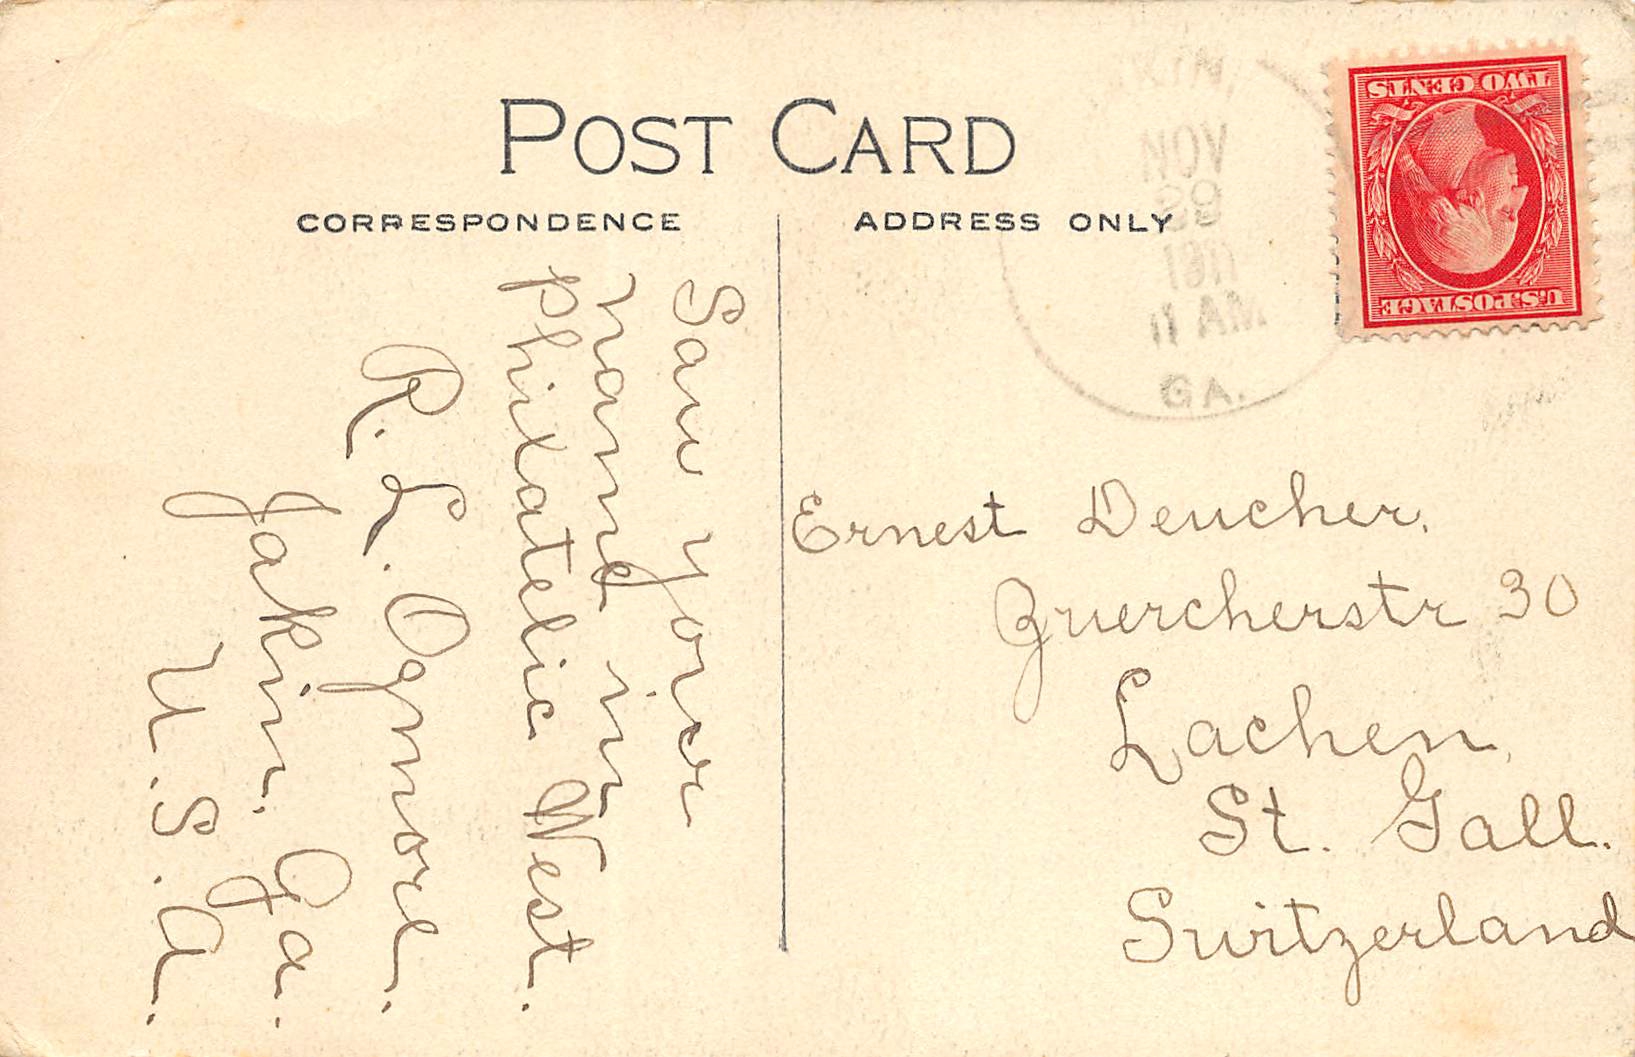 POST CARD
CORRESPONDENCE
ADDRESS ONLY
TWO CENTS
U.S. POSTAGE
KIN
NOV
29
11 AM
GA.
Saw your
name in
philatelic West.
R. L. Ognoel.
Jakin. Ga.
U. S. A.
Ernest Deucher.
Zuercherstr 30
Lachen,
St. Gall.
Switzerland